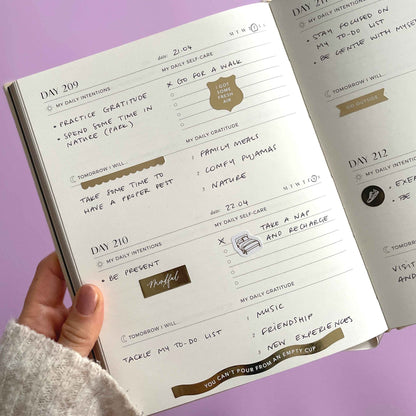 DAY 209
DATE: 21.04
M T W T F S S
MY DAILY INTENTIONS
• PRACTICE GRATITUDE
• SPEND SOME TIME IN
NATURE (PARK)
MY DAILY SELF-CARE
X GO FOR A WALK
I GOT
SOME
FRESH
AIR
TOMORROW I WILL...
TAKE SOME TIME TO
HAVE A PROPER REST
MY DAILY GRATITUDE
1 FAMILY MEALS
2 COMFY PYJAMAS
3 NATURE
DAY 210
DATE: 22.04
M T W T F S S
MY DAILY INTENTIONS
• BE PRESENT
Mindful
MY DAILY SELF-CARE
X TAKE A NAP
AND RECHARGE
TOMORROW I WILL...
TACKLE MY TO-DO LIST
MY DAILY GRATITUDE
1 MUSIC
2 FRIENDSHIP
3 NEW EXPERIENCES
YOU CAN'T POUR FROM AN EMPTY CUP
MY DAILY INTENTIONS
• STAY FOCUSED ON
MY TO-DO LIST
• BE GENTLE WITH
TOMORROW I WILL...
GO OUTSIDE
DAY 212
MY DAILY INTENTIONS
• BE
TOMORROW I
AND